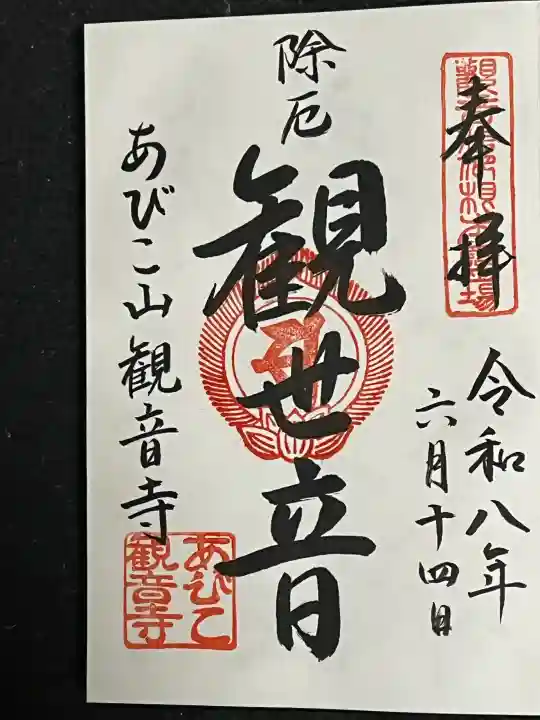 奉拝
令和八年
六月十四日
除厄
観世音
あびこ山観音寺
あびこ
観音寺